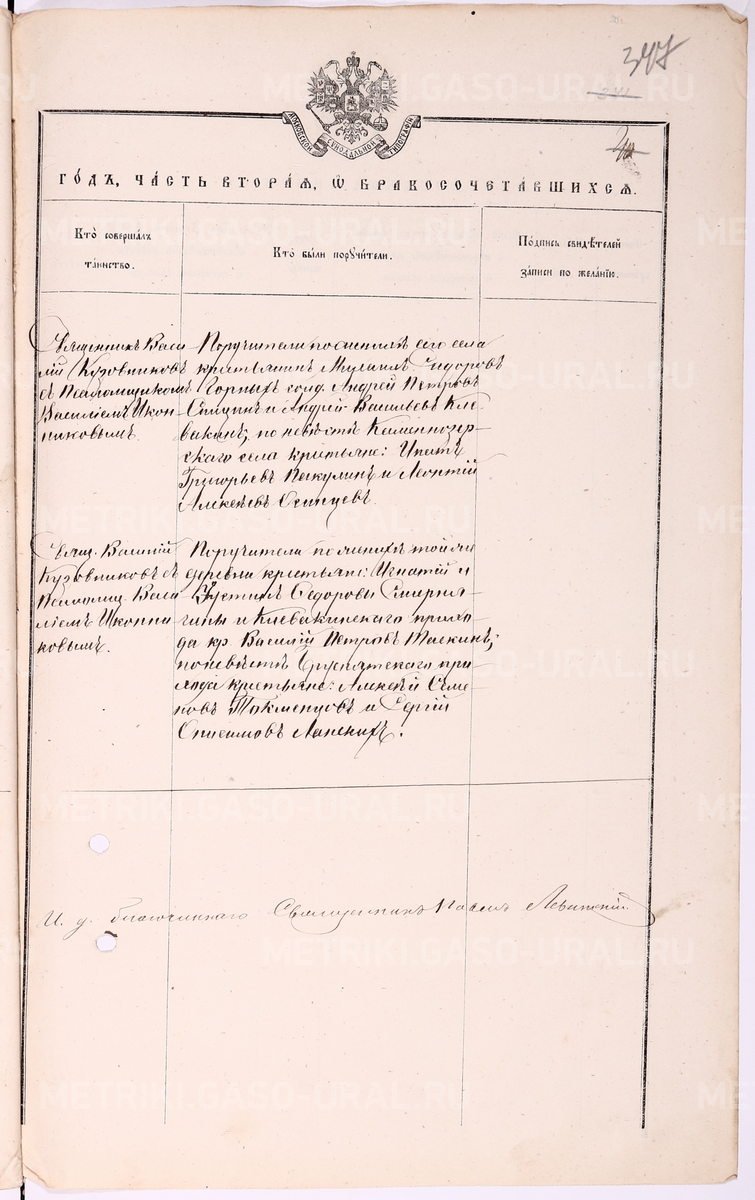 347
МОСКОВСКОЙ СѴНОДАЛЬНОЙ ТИПОГРАФІИ
ГО́ДЪ, ЧА́СТЬ ВТОРА́Я, Ѡ҆ БРАКОСОЧЕТА́ВШИХСЯ.
Кто̀ соверша́лъ
та́инство.
Кто̀ бы́ли порꙋчи́тели.
По́дпись свидѣ́телей
за́писи по жела́нїю.
Священникъ Васи-
лій Кузовниковъ
съ Псаломщикомъ
Василіемъ Икон-
никовымъ.
Поручители по женихѣ сего села
крестьянинъ Михаилъ Ѳидоровъ
Горныхъ солд. Андрей Петровъ
Спицинъ и Андрей Васильевъ Кле-
вакинъ; по невѣстѣ Каменнозер-
скаго села крестьяне: Ипатъ
Григорьевъ Пискулинъ и Леонтій
Алексѣевъ Осинцевъ.
Свящ. Василій
Кузовниковъ съ
Псаломщ. Васи-
ліемъ Иконни-
ковымъ.
Поручители по женихѣ той же
деревни крестьяне: Игнатій и
Устинъ Ѳедоровы Смирня-
гины и Клевакинскаго прихо-
да кр. Василій Петровъ Таскинъ;
по невѣстѣ Бруснятскаго при-
хода крестьяне: Алексѣй Семе-
новъ Токменцовъ и Сергій
Онисимовъ Лапскихъ.
И. д. благочиннаго Священникъ Павелъ Левитскій
METRIKI.GASO-URAL.RU